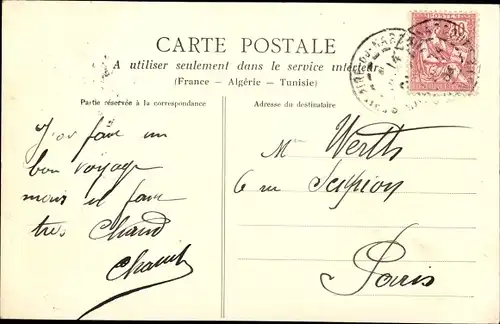 CARTE POSTALE
A utiliser seulement dans le service intérieur
(France - Algérie - Tunisie)
Partie réservée à la correspondance
Adresse du destinataire
J'ai fait un
bon voyage
mais il fait
très Chaud
Mr Werth
6 rue Scipion
Paris
POSTES